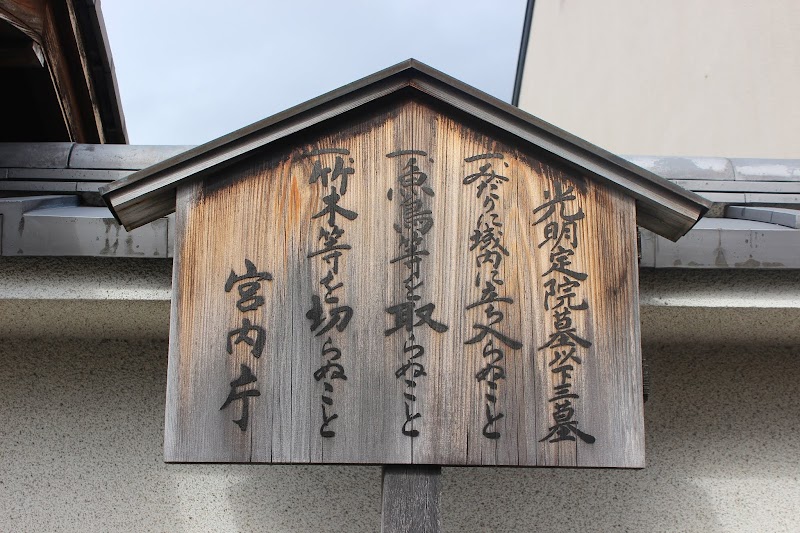 光明定院墓以下三墓
一みだりに域内に立ち入らぬこと
一魚鳥等を取らぬこと
一竹木等を切らぬこと
宮内庁